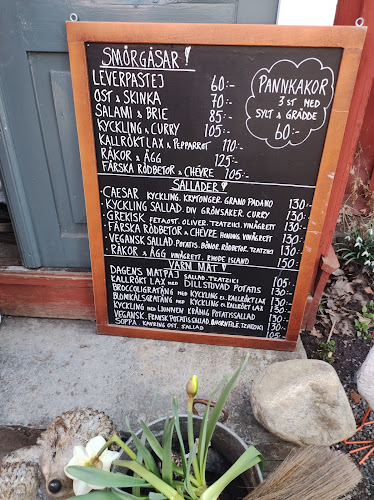 SMÖRGÅSAR!
LEVERPASTEJ 60:-
OST & SKINKA 70:-
SALAMI & BRIE 85:-
KYCKLING & CURRY 105:-
KALLRÖKT LAX & PEPPARROT 110:-
RÄKOR & ÄGG 125:-
FÄRSKA RÖDBETOR & CHÈVRE 105:-
PANNKAKOR
3 ST MED
SYLT & GRÄDDE
60:-
SALLADER!
·CAESAR KYCKLING. KRUTONGER. GRANO PADANO 130:-
·KYCKLING SALLAD. DIV GRÖNSAKER. CURRY 130:-
·GREKISK FETAOST. OLIVER. TZATZIKI. VINÄGRETT 130:-
·FÄRSKA RÖDBETOR & CHÈVRE HONUNG VINÄGRETT 130:-
·VEGANSK SALLAD. POTATIS. BÖNOR. RÖDBETOR. TZATZIKI 130:-
·RÄKOR & ÄGG VINÄGRETT. RHODE ISLAND 150:-
VARM MAT!
DAGENS MATPAJ SALLAD. TZATZIKI 105:-
KALLRÖKT LAX MED DILLSTUVAD POTATIS 130:-
BROCCOLIGRATÄNG MED KYCKLING EL KALLRÖKT LAX 130:-
BLOMKÅLSGRATÄNG MED KYCKLING EL KALLRÖKT LAX 130:-
KYCKLING MED LJUMMEN KRÄMIG POTATISSALLAD 130:-
VEGANSK. FRANSK POTATISSALLAD. TZATZIKI 130:-
SOPPA. KAVRING OST. SALLAD 105:-